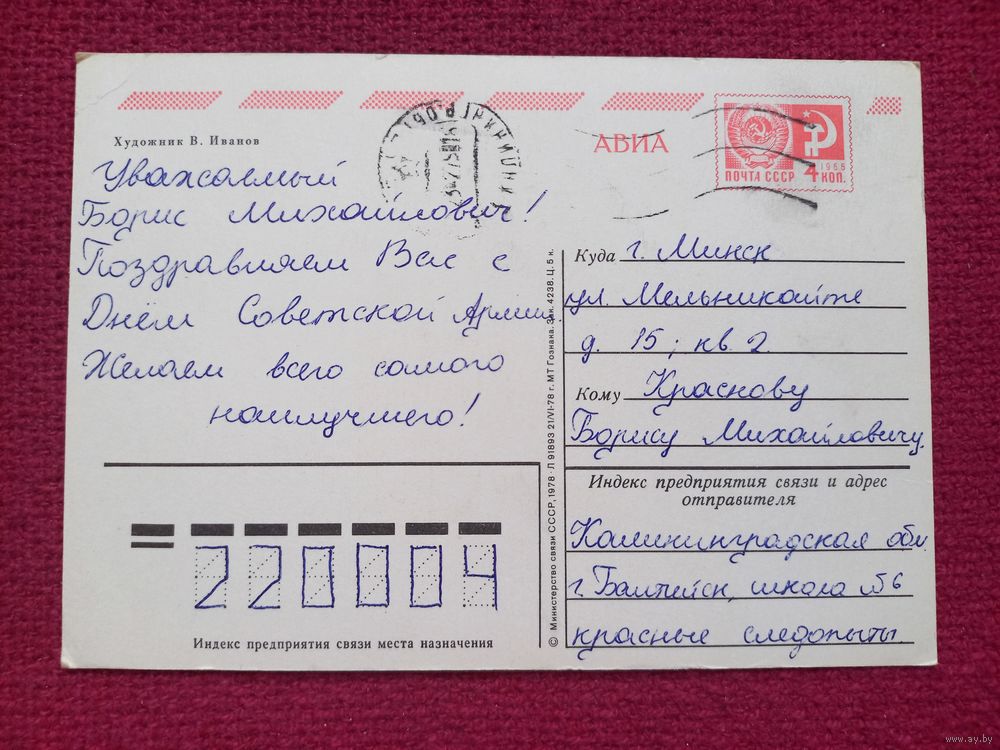 Художник В. Иванов
АВИА
ПОЧТА СССР
1966
4 КОП.
Уважаемый
Борис Михайлович!
Поздравляем Вас с
Днём Советской Армии.
Желаем всего самого
наилучшего!
220004
Индекс предприятия связи места назначения
© Министерство связи СССР, 1978 · Л 91893 21/VI-78 г. МТ Гознака. Зак. 4238. Ц. 5 к.
Куда г. Минск
ул. Мельникайте
д. 15; кв. 2.
Кому Краснову
Борису Михайловичу.
Индекс предприятия связи и адрес
отправителя
Калининградская обл
г. Балтийск, школа №6
красные следопыты.
www.ay.by